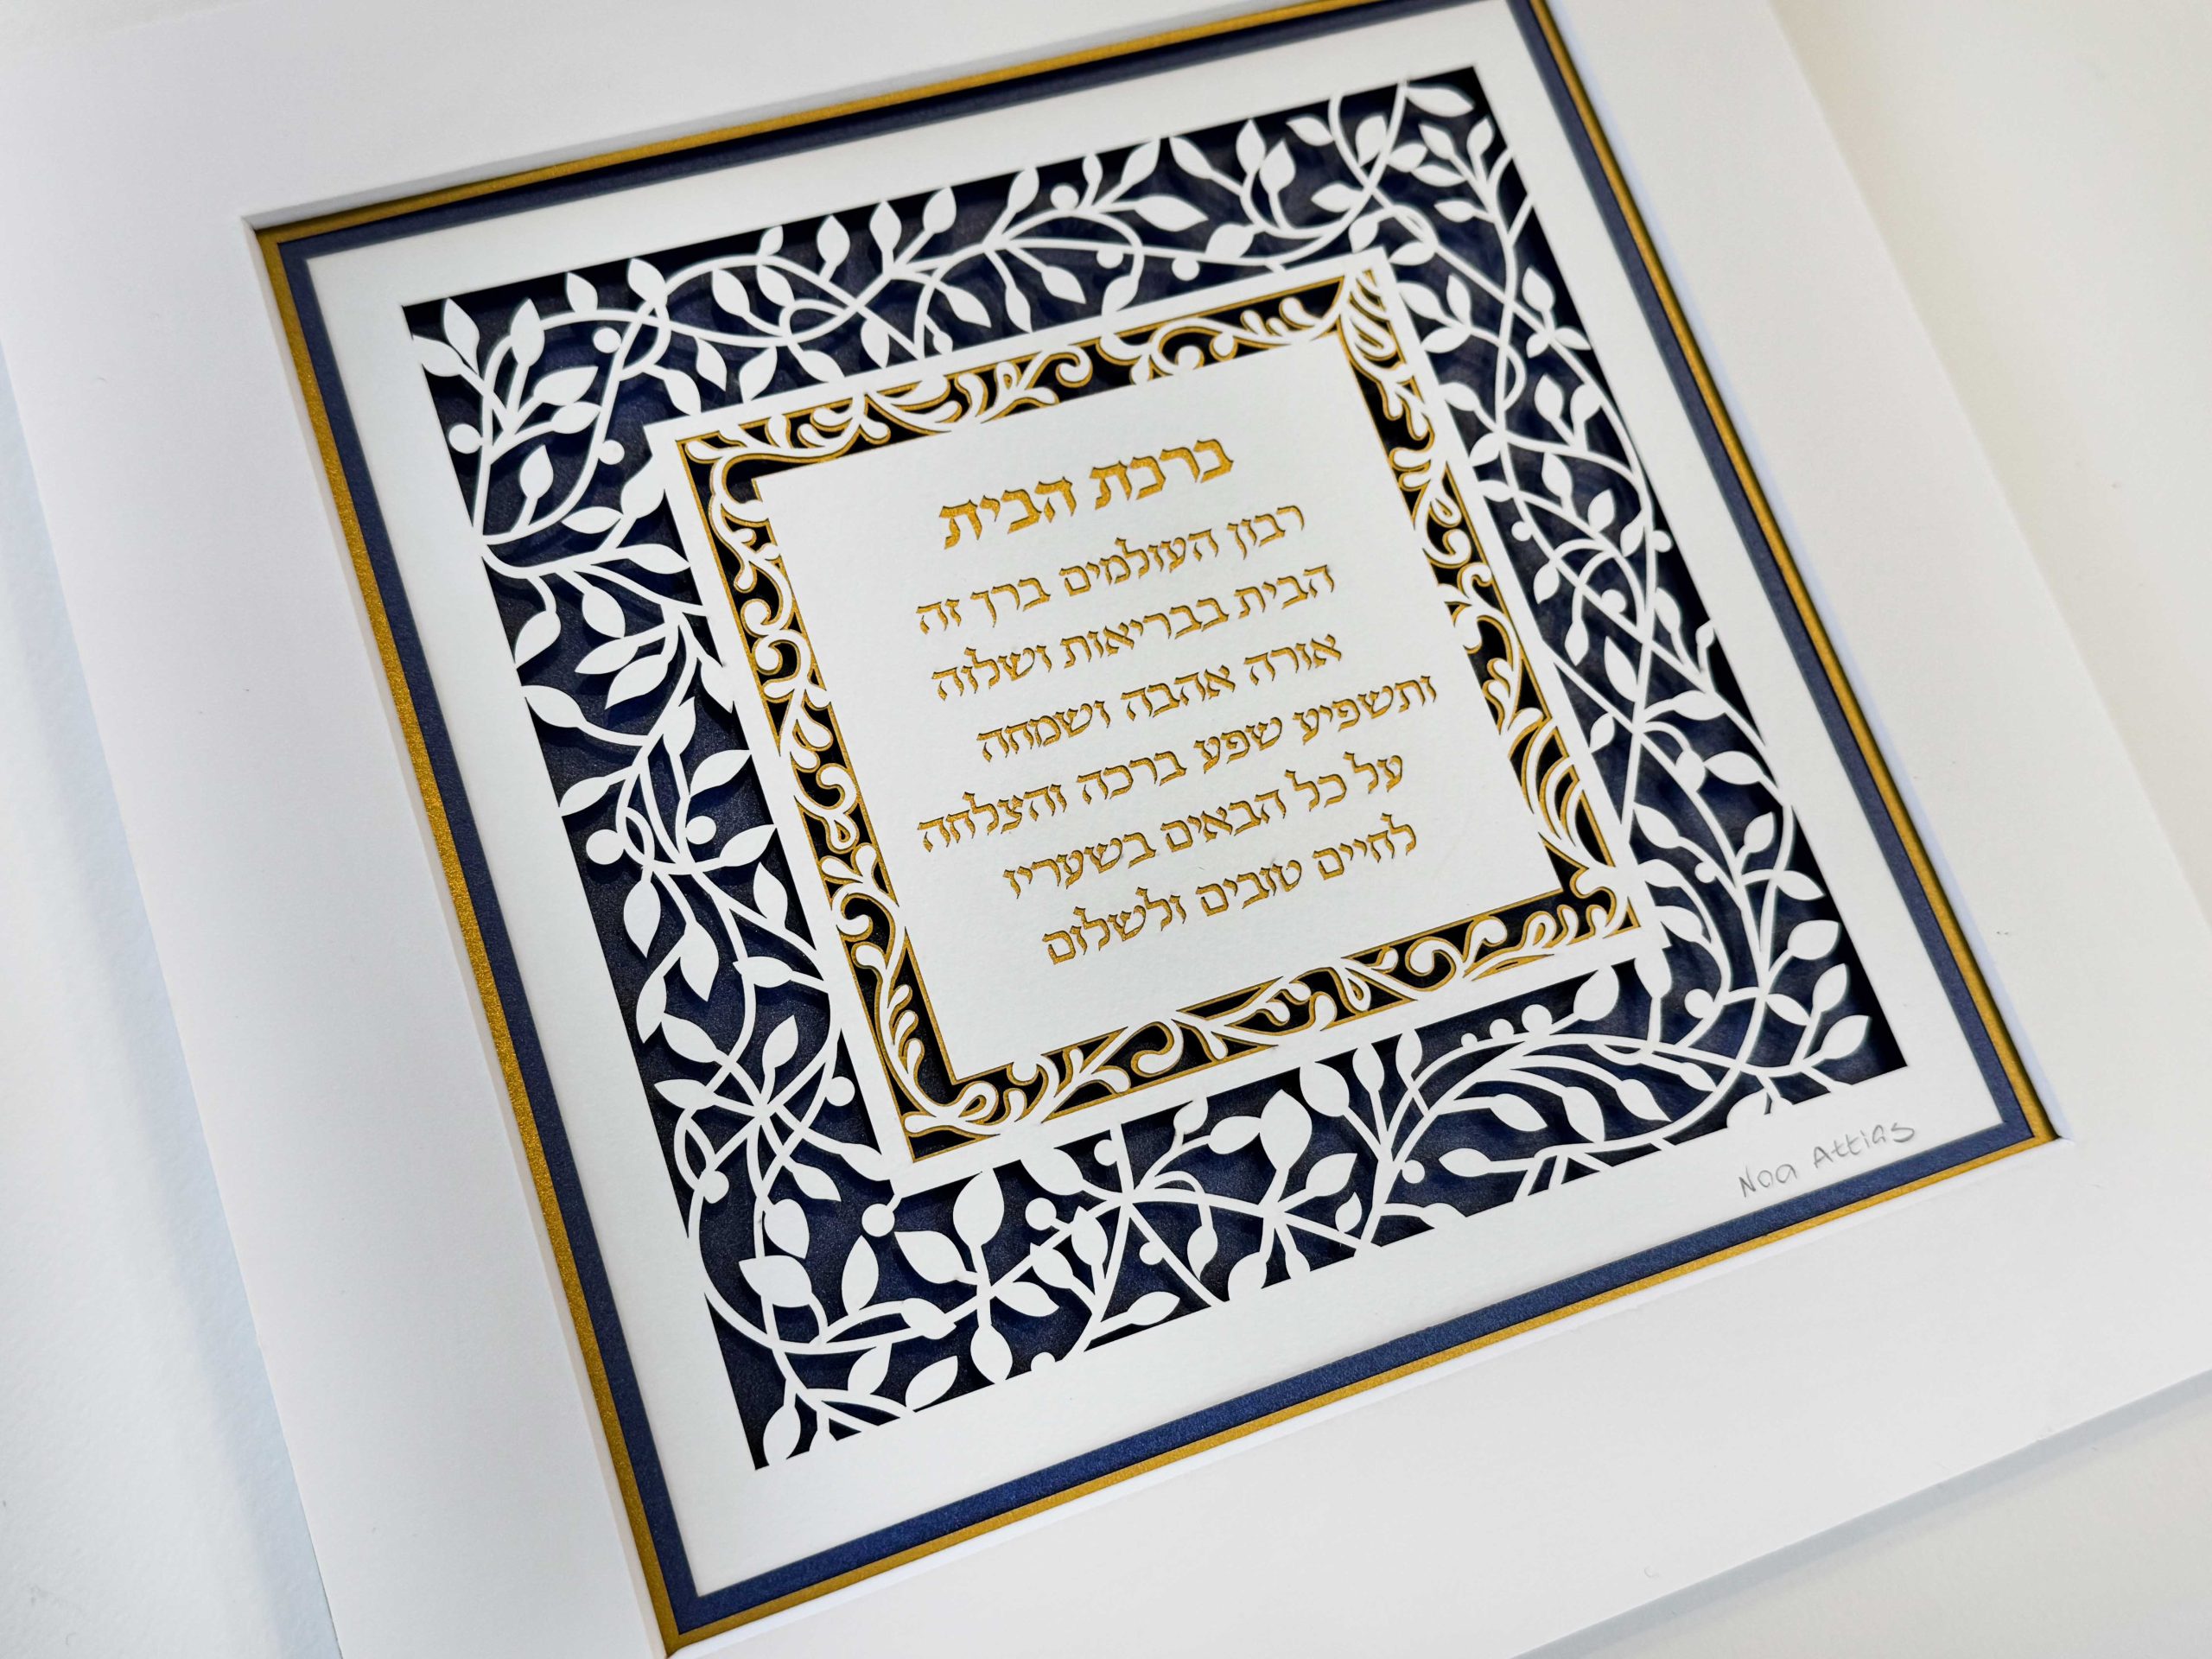 ברכת הבית
רבון העולמים ברך זה
הבית בבריאות ושלוה
אורה אהבה ושמחה
ותשפיע שפע ברכה והצלחה
על כל הבאים בשעריו
לחיים טובים ולשלום
Noa Attias